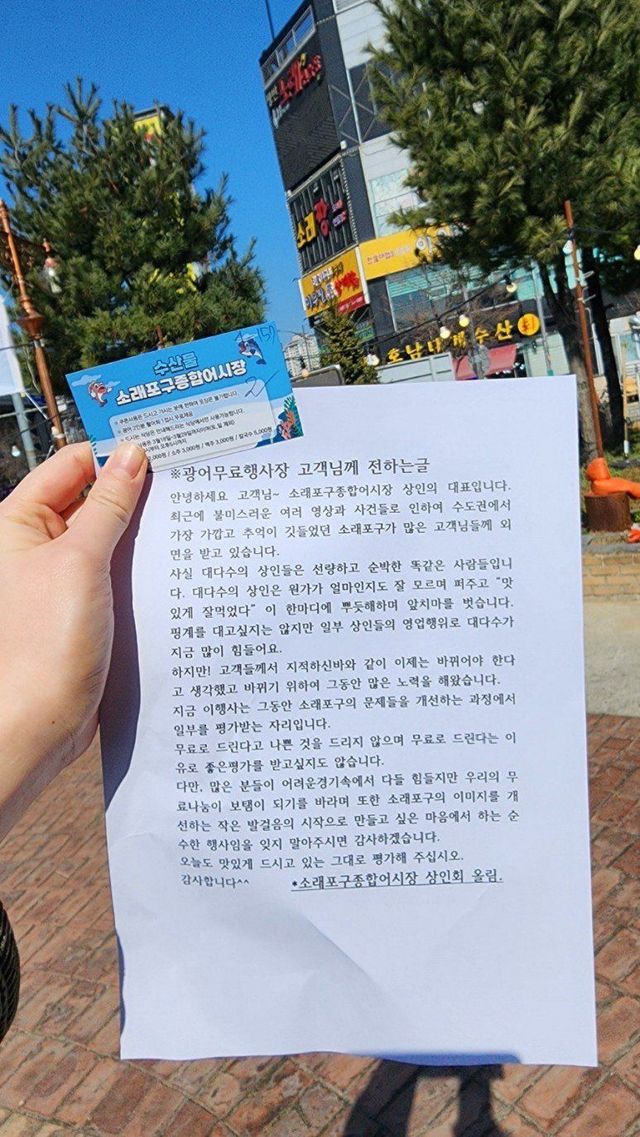 소래
소래짱
호남 수산
수산물
소래포구종합어시장
※ 쿠폰사용은 드시고 가시는 분에 한하며 포장은 불가합니다.
※ 광어 2인분 활어회 1접시 무료제공
2,000원 / 소주 3,000원 / 맥주 3,000원 / 칼국수 5,000원
※광어무료행사장 고객님께 전하는글
안녕하세요 고객님~ 소래포구종합어시장 상인의 대표입니다.
최근에 불미스러운 여러 영상과 사건들로 인하여 수도권에서
가장 가깝고 추억이 깃들었던 소래포구가 많은 고객님들께 외
면을 받고 있습니다.
사실 대다수의 상인들은 선량하고 순박한 똑같은 사람들입니
다. 대다수의 상인은 원가가 얼마인지도 잘 모르며 퍼주고 "맛
있게 잘먹었다" 이 한마디에 뿌듯해하며 앞치마를 벗습니다.
핑계를 대고싶지는 않지만 일부 상인들의 영업행위로 대다수가
지금 많이 힘들어요.
하지만! 고객들께서 지적하신바와 같이 이제는 바뀌어야 한다
고 생각했고 바뀌기 위하여 그동안 많은 노력을 해왔습니다.
지금 이행사는 그동안 소래포구의 문제들을 개선하는 과정에서
일부를 평가받는 자리입니다.
무료로 드린다고 나쁜 것을 드리지 않으며 무료로 드린다는 이
유로 좋은평가를 받고싶지도 않습니다.
다만, 많은 분들이 어려운경기속에서 다들 힘들지만 우리의 무
료나눔이 보탬이 되기를 바라며 또한 소래포구의 이미지를 개
선하는 작은 발걸음의 시작으로 만들고 싶은 마음에서 하는 순
수한 행사임을 잊지 말아주시면 감사하겠습니다.
오늘도 맛있게 드시고 있는 그대로 평가해 주십시오.
감사합니다^^ *소래포구종합어시장 상인회 올림.